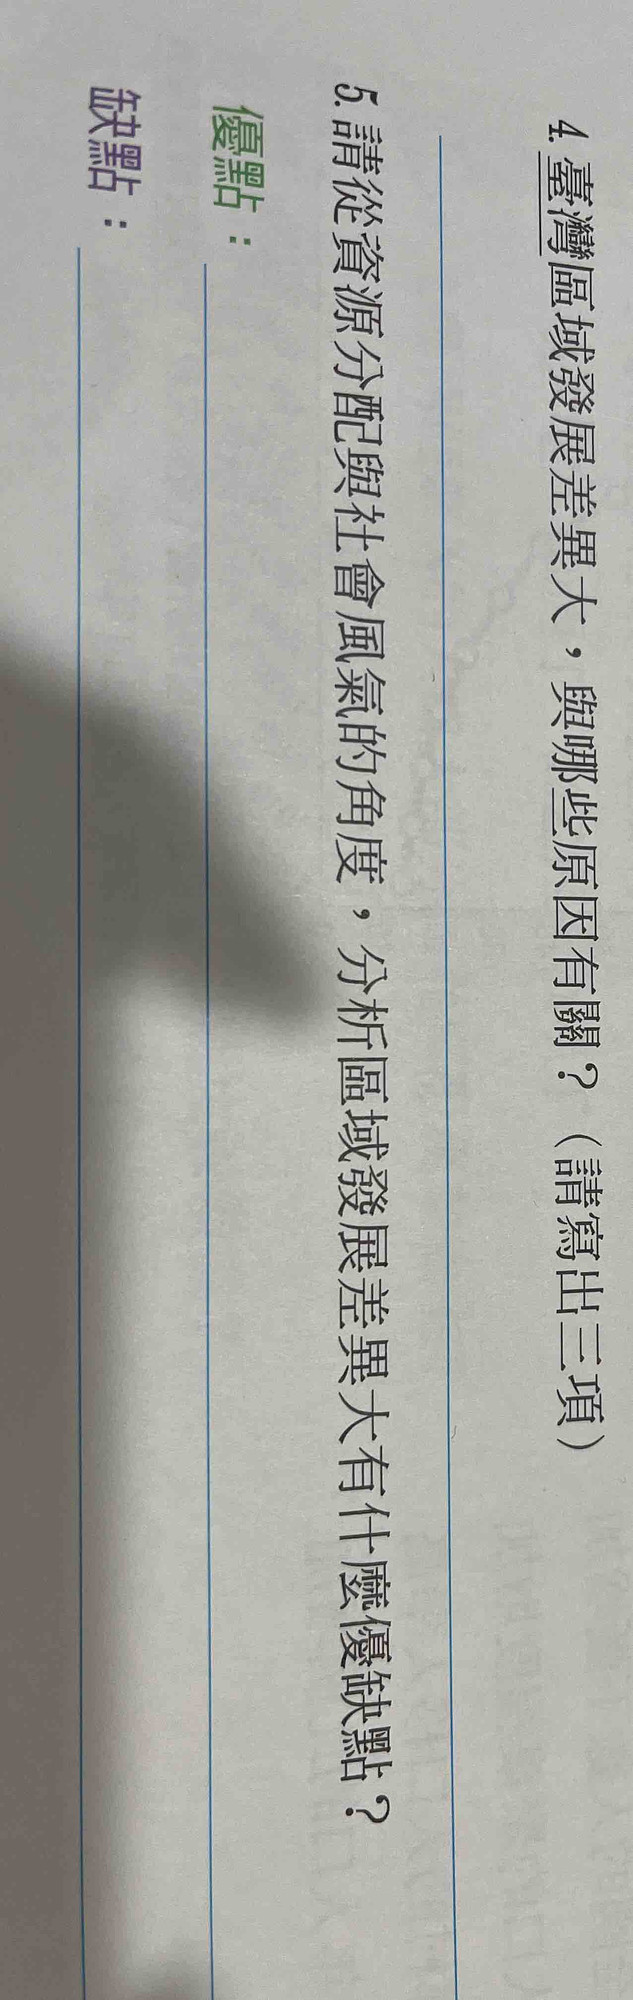 4.臺灣區域發展差異大，與哪些原因有關？（請寫出三項）
5.請從資源分配與社會風氣的角度，分析區域發展差異大有什麼優缺點？
優點：
缺點：